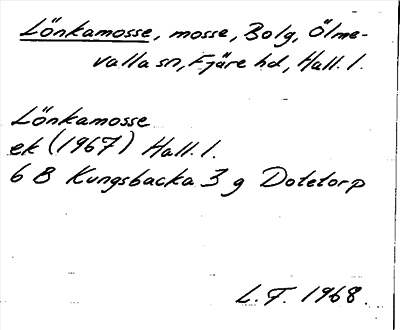 Lönkamosse, mosse, Bolg, Ölme-
valla sn, Fjäre hd, Hall. l.
Lönkamosse
ek (1967) Hall. l.
6 B Kungsbacka 3 g Dotetorp
L. F. 1968.